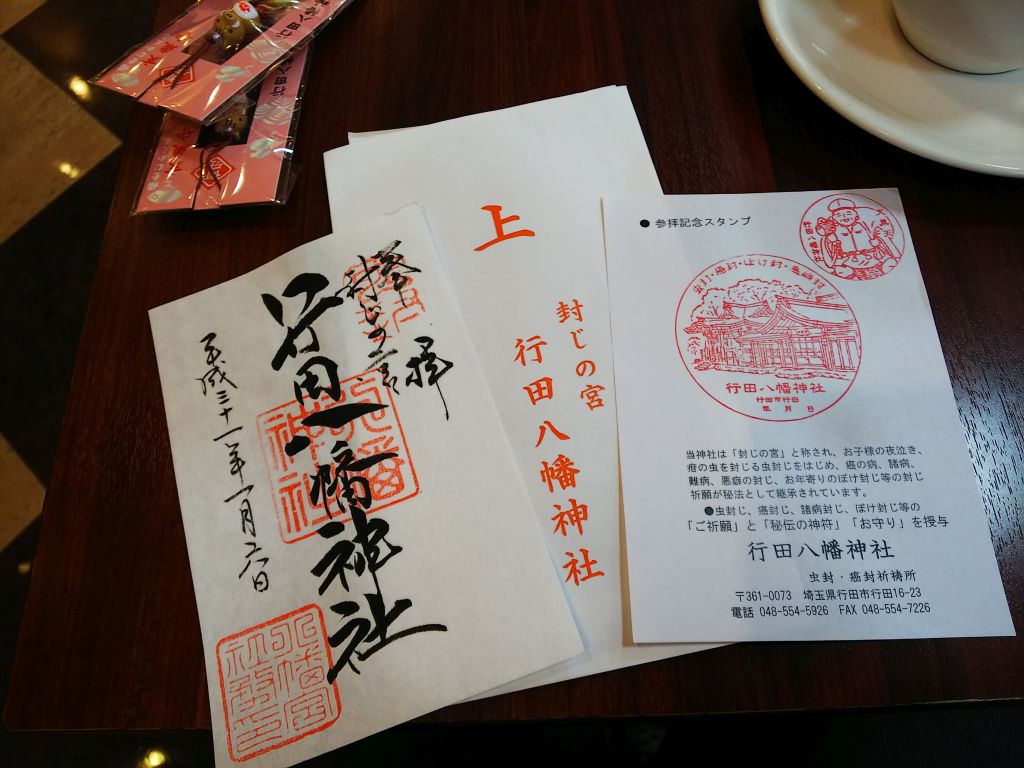 奉拝
封じの宮
行田八幡神社
平成三十一年一月六日
八幡
神社
上
封じの宮
行田八幡神社
●参拝記念スタンプ
大黒天
虫封・癌封・ぼけ封・悪癖封
行田八幡神社
行田市行田
年 月 日
当神社は「封じの宮」と称され、お子様の夜泣き、
疳の虫を封じる虫封じをはじめ、癌の病、諸病、
難病、悪癖の封じ、お年寄りのぼけ封じ等の封じ
祈願が秘法として継承されています。
●虫封じ、癌封じ、諸病封じ、ぼけ封じ等の
「ご祈願」と「秘伝の神符」「お守り」を授与
行田八幡神社
虫封・癌封祈祷所
〒361-0073 埼玉県行田市行田16-23
電話 048-554-5926 FAX 048-554-7226